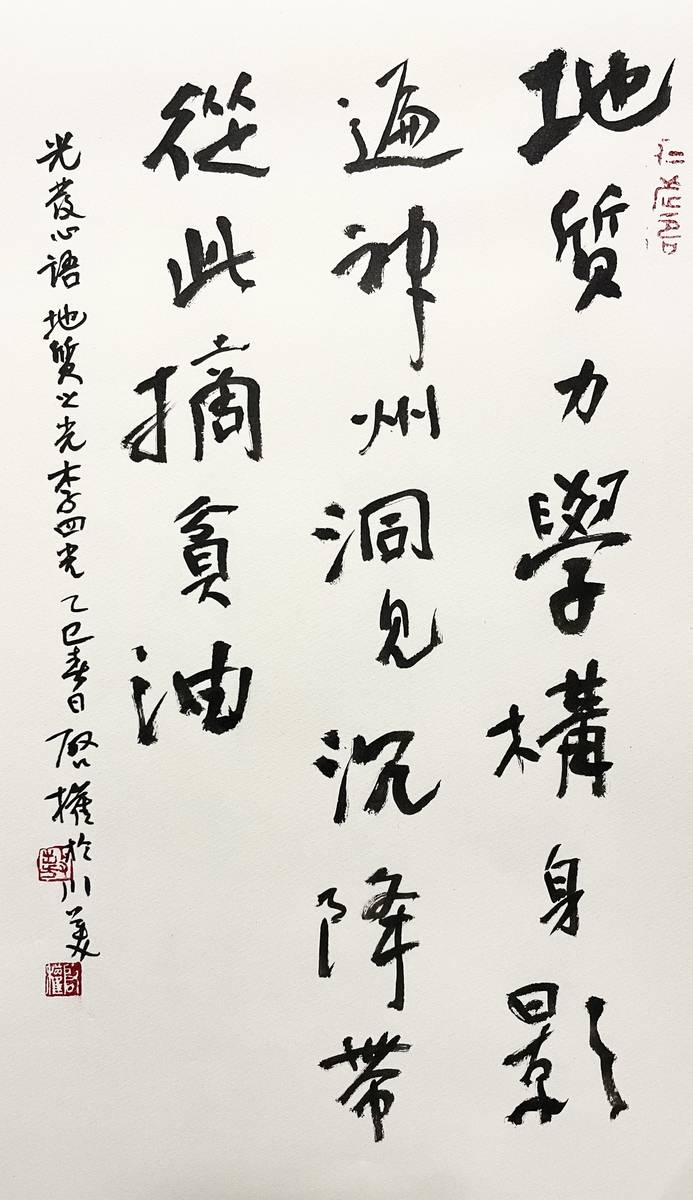 地質力學構身影
遍神州洞見沉降帶
從此摘貧油
光發心語 地質之光李四光 乙巳春日 啟權於川美
啟權